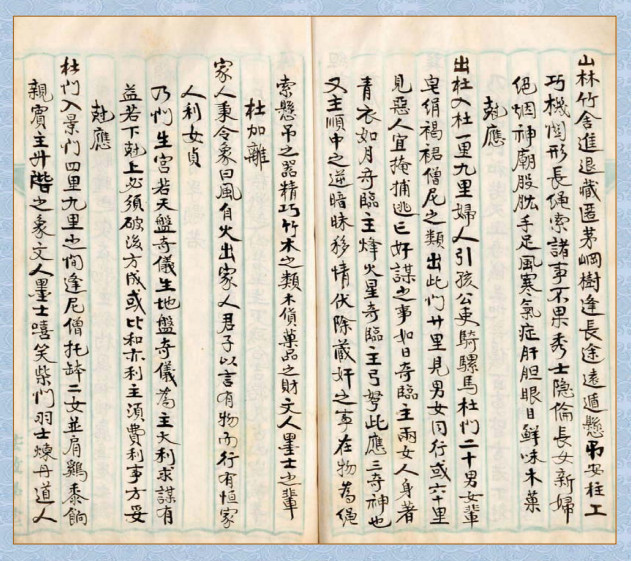 山林竹舍進退藏匿茅岡樹逢長途遠遁懸吊安柱工
巧機関形長繩索諸事不果秀士隐倫長女新婦
絕烟神廟股肱手足風寒氣症肝胆眼目鮮味木菓
尅應
出杜入杜一里九里婦人引孩公吏騎騾馬杜門二十男女輩
皂絹褐裙僧尼之類出此門廿里見男女同行或六十里
見惡人宜掩捕逃亡奸謀之事如日奇臨主兩女人身著
青衣如月奇臨主烽火星奇臨主弓弩此應三奇神也
又主順中之逆暗昧移情伏除藏奸之事在物為繩
索懸吊之器精巧竹木之類木貨菓品之財文人墨士之輩
杜加離
家人秉令象曰風自火出家人君子以言有物而行有恒家
人利女貞
乃門生宮若天盤奇儀生地盤奇儀為主大利求謀有
益若下尅上必須破後方成或比和亦利主須費利事方妥
尅應
杜門入景門四里九里之間逢尼僧托缽二女並肩鷄黍餉
親賓主升階之象文人墨士嘻笑柴門羽士煉丹道人